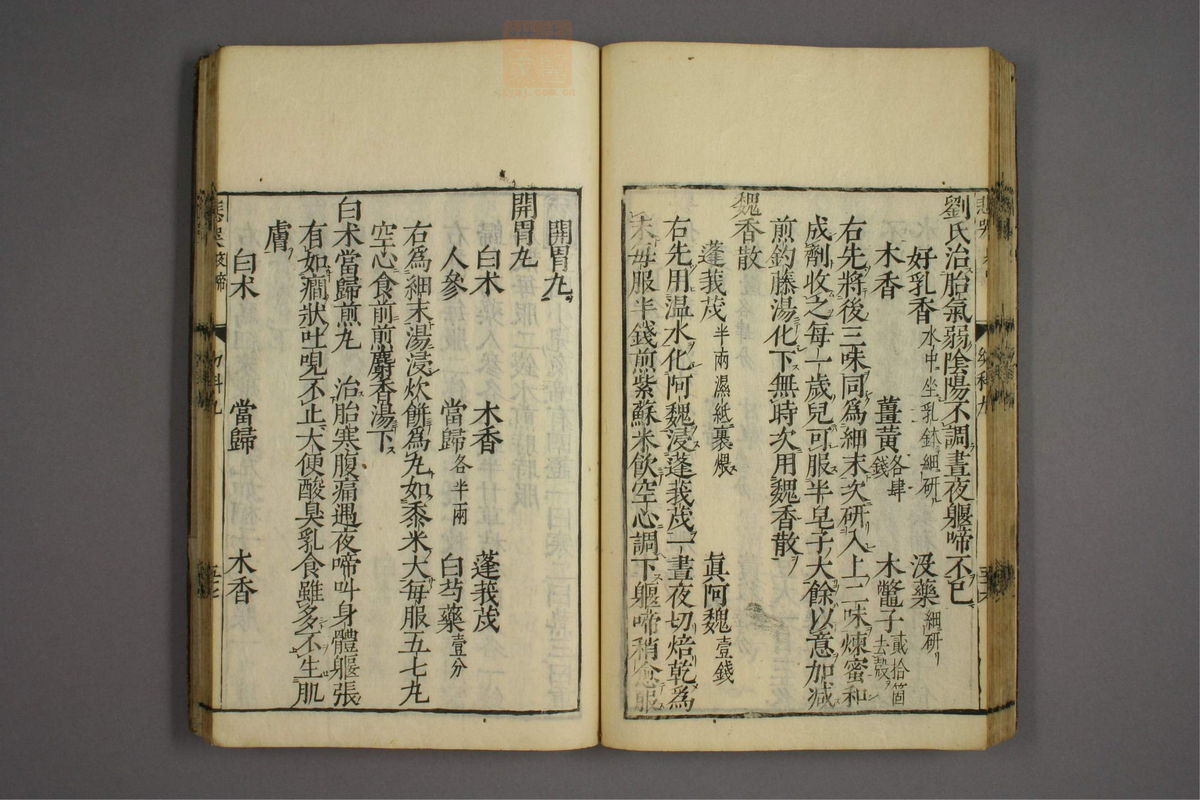 劉氏治胎氣弱陰陽不調晝夜軀啼不已
好乳香水中坐乳鉢細研 沒藥細研
木香 薑黃各肆錢 木鼈子貳拾箇去殼
右先將後三味同爲細末次研入上二味煉蜜和
成劑收之每一歲兒可服半皂子大餘以意加減
煎釣藤湯化下無時次用魏香散
魏香散
蓬莪茂半兩濕紙裹煨 眞阿魏壹錢
右先用温水化阿魏浸蓬莪茂一晝夜切焙乾爲
末每服半錢煎紫蘇米飲空心調下軀啼稍愈服
開胃丸
開胃丸
白术 木香 蓬莪茂
人參 當歸各半兩 白芍藥壹分
右爲細末湯浸炊餅爲丸如黍米大每服五七丸
空心食前前麝香湯下
白术當歸煎丸 治胎寒腹痛遇夜啼叫身體軀張
有如癎狀吐哯不止大便酸臭乳食雖多不生肌
膚
白术 當歸 木香